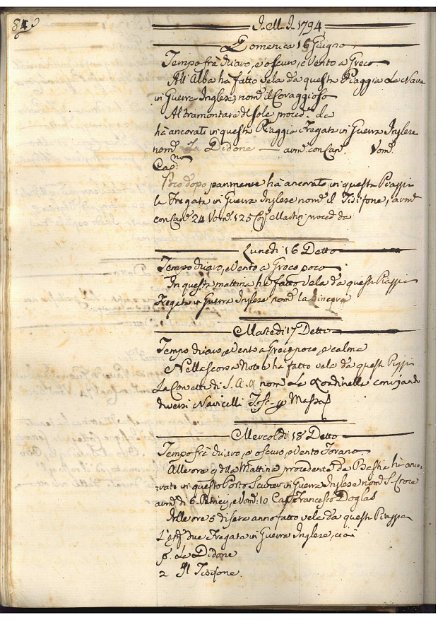 84
A. M. D. 1794
Domenica 15 Giugno
Tempo frà chiaro, e oscuro, e Vento a Greco
All' Alba ha fatto Vela da questa Piaggia La Nave
in Guerra Inglese nom.ª il Coraggioso
Al tramontar del Sole proced. da
hà ancorato in questa Piaggia Fregata in Guerra Inglese
nom.ª La Didone arm. con Can. Vom.
Cap.
Poco dopo parimente hà ancorato in questa Piaggia
la Fregata in Guerra Inglese nom.ª il Tisifone, arm.
con Can. 24 Vom. 125 Cap. Martin proced. da
Lunedì 16 Detto
Tempo chiaro, e Vento a Greco poco
In questa mattina hà fatto Vela da questa Piaggia
Fregata in Guerra Inglese nom.ª la
Martedì 17 Detto
Tempo chiaro, e Vento a Greco poco, e calma
Nella scorsa Notte hà fatto vela da questa Piaggia
La di S. A. R. nom.ª La Rondinella con
diversi Navicelli
Mercoldì 18 Detto
Tempo frà chiaro, e oscuro, e Vento
All'ore 9 della Mattina procedente da hà anco-
rato in questo Porto in Guerra Inglese nom.
arm. di 6 e Vom. 10 Cap. Francesco Doglas
All'ore 5 di sera anno fatto vela da questa Piaggia
due Fregata in Guerra Inglese, cioè
La Didone
2 Il Tisifone